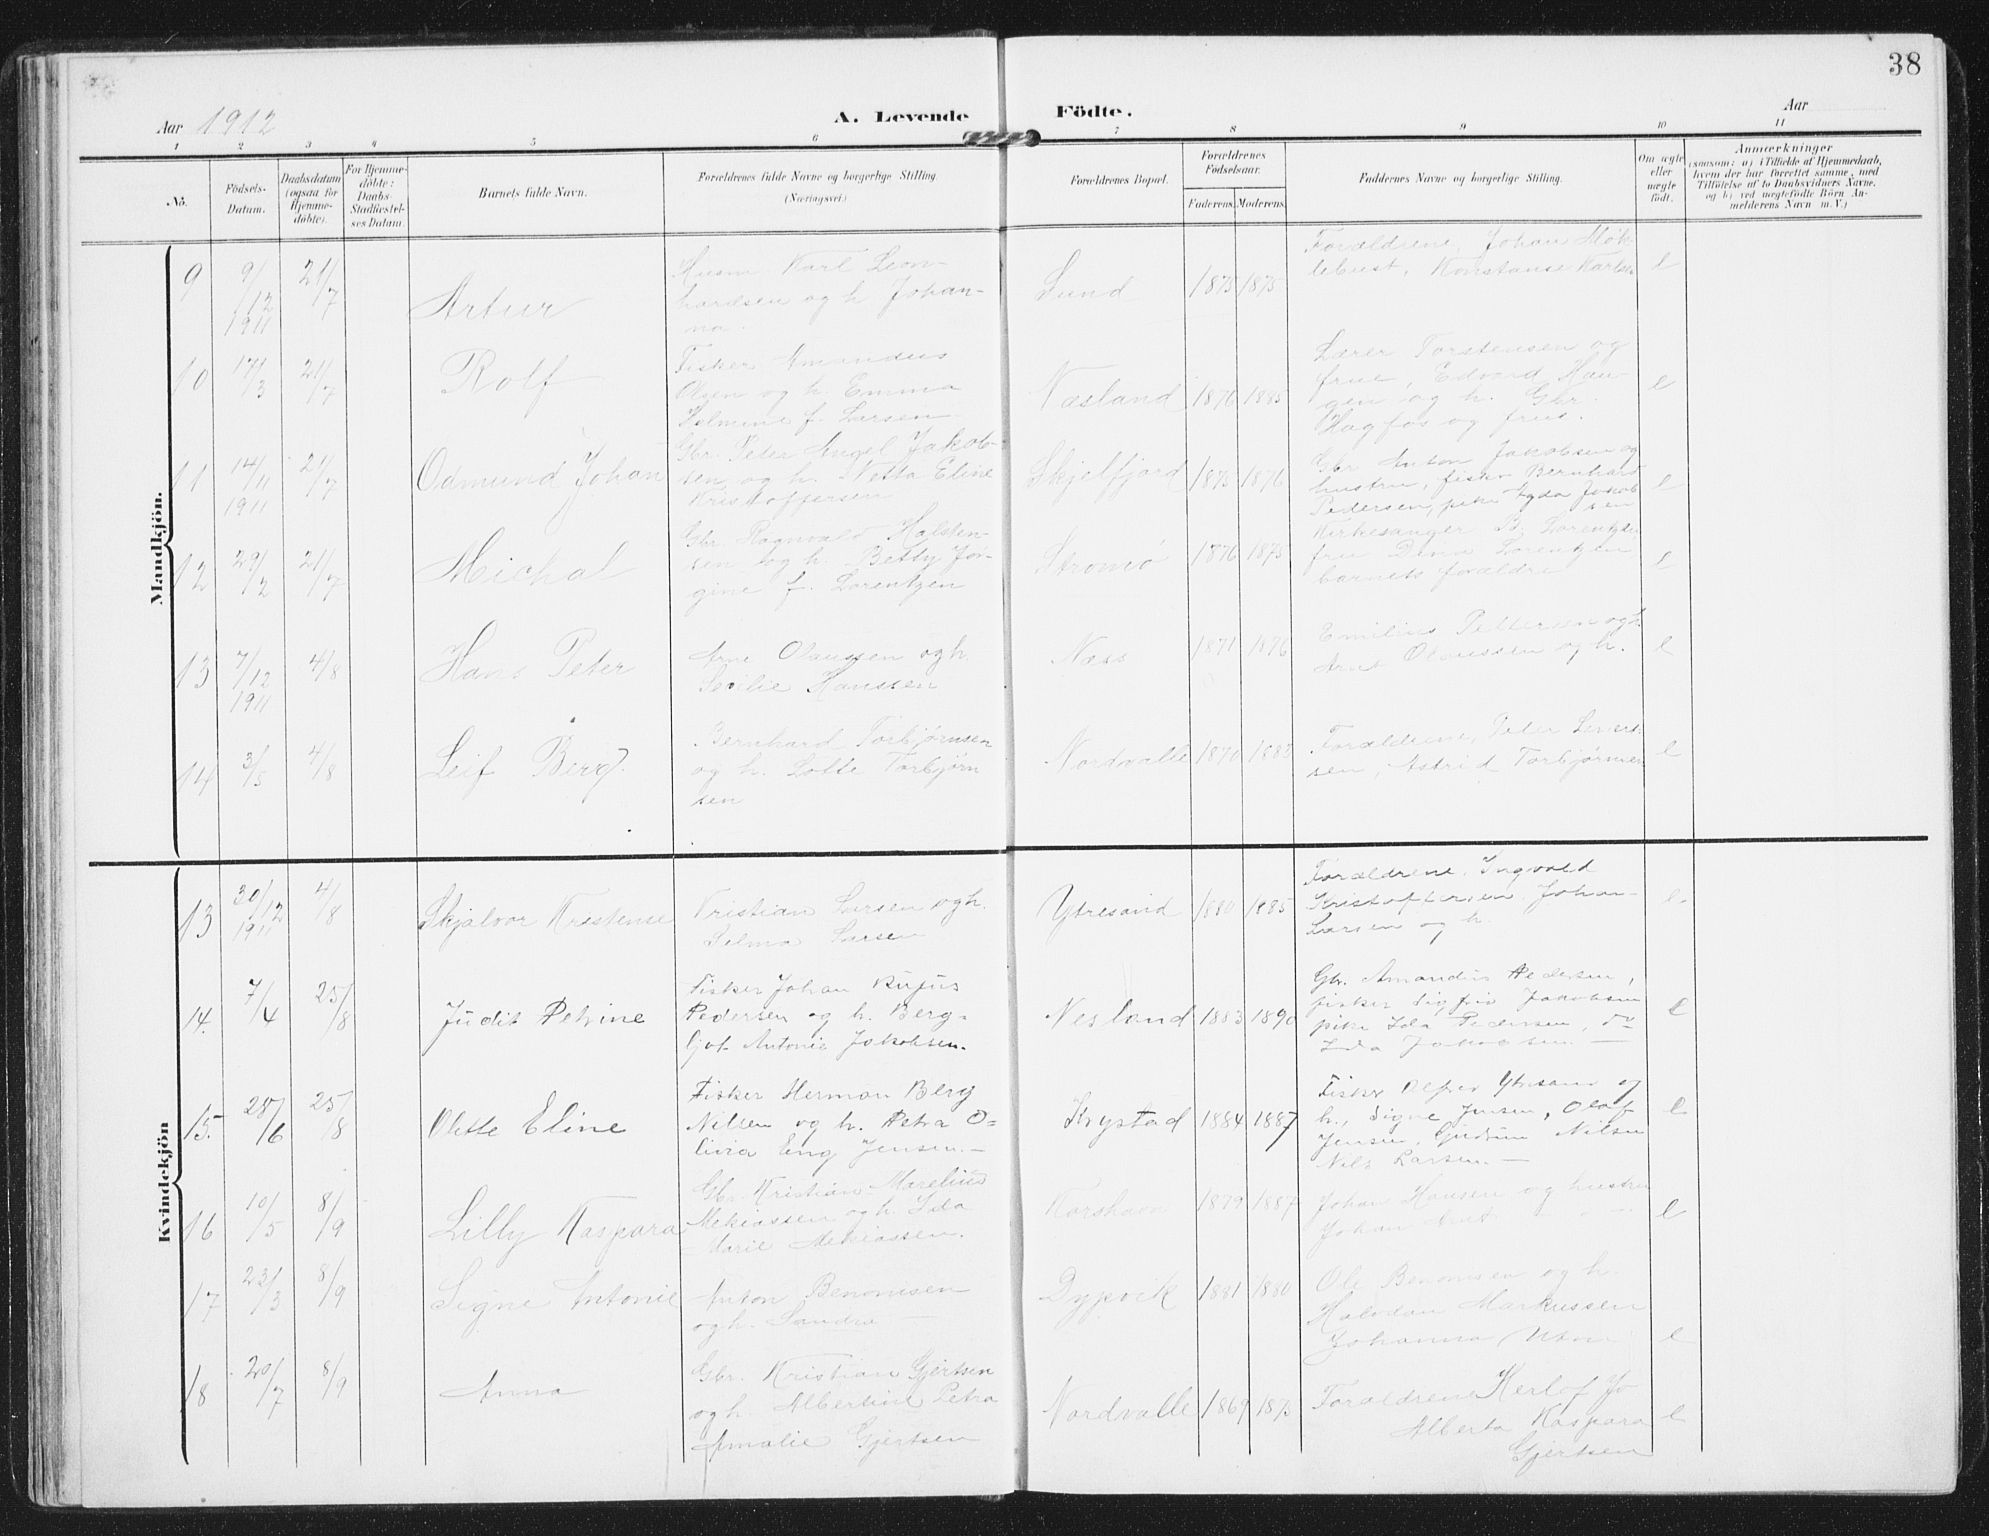 38
Aar 1912
A. Levende Födte.
Aar
1 2 3 4 5 6 7 8 9 10 11
No.
Födsels-
Datum.
Daabsdatum
(ogsaa for
Hjemme-
döbte).
For Hjemme-
döbte:
Daabs-
Stadfæstel-
ses Datum.
Barnets fulde Navn.
Forældrenes fulde Navne og borgerlige Stilling.
(Næringsvei.)
Forældrenes Bopæl.
Forældrenes
Födselsaar.
Faderens. Moderens.
Faddernes Navne og borgerlige Stilling.
Om ægte
eller
uægte
födt.
Anmærkninger
(saasom: a) i Tilfælde af Hjemmedaab,
hvem der har forrettet samme, med
Tilföielse af to Daabsvidners Navne,
og b) ved uægtefödte Börn An-
melderens Navn m. V.)
Mandkjön.
9
9/12
1911
21/7
Artur
Husm Karl Leon-
hardsen og h Johan-
na.
Sund
1875 1875
Forældrene, Johan Møk-
lebust, Konstanse
e
10
17/3
21/7
Rolf
Fisker Amandus
Olsen og h. Emma
Helmine f. Larsen
Næsland
1876 1885
Lærer Torstensen og
frue, Edvard Hau-
gen og h. Gbr.
Hagfos og frue.
e
11
14/11
1911
21/7
Odmund Johan
Gbr. Peter Angel Jakob-
sen og h. Netta Eline
Kristoffersen
Skjelfjord
1875 1876
Gbr Anton Jakobsen og
hustru, fisker Bernhard
Pedersen, pike Lyda Jakob
sen
e
12
29/2
21/7
Michal
Gbr. Ragnvald Halsten-
sen og h. Betty Jør-
gine f. Lorentzen
Strømø
1876 1875
Kirkesanger B. Lorentzen
frue Dina Lorentzen
barnets forældre
e
13
7/12
1911
4/8
Hans Peter
Arne Olaussen og h.
Secilie Hanssen
Næss
1871 1876
Emilius Pettersen og h
Arnt Olaussen og h.
e
14
3/5
4/8
Leif Berg.
Bernhard Torbjørnsen
og h. Lotte Torbjørn
sen
Nordvalle
1870 1883
Forældrene, Peter
sen, Astrid Torbjørnsen
e
Kvindekjön
13
30/12
1911
4/8
Skjalvor Kristense
Kristian Larsen og h.
Selma Larsen
Ytresand
1880 1885
Forældrene, Ingvald
Kristoffersen Johan
Larsen og h.
e.
14.
7/4
25/8
Judit Petrine
Fisker Johan Rufus
Pedersen og h. Berg-
ljot Antonie Jakobsen.
Nesland
1883 1890
Gbr. Amandus Pedersen,
fisker Sigfrid Jakobsen
pike Ida Pedersen, do
Ida Jakobsen. —
e
15.
28/6
25/8
Olette Eline
Fisker Herman Berg
Nilsen og h. Petra O=
livia Eng Jensen. —
Krystad
1884 1887
Fisker Alfred Ytresand og
h., Signe Jensen, Olaf
Jensen, Gudrun Nilsen
Nils Larsen. —
e
16
10/5
8/9
Lilly Kaspara
Gbr. Kristian Marelius
Mekiassen og h. Ida
Marie Mekiassen.
1879 1887
Johan Hansen og hustru
Johan Arnt
e
17
23/3
8/9
Signe Antonie
Anton Benonisen
og h. Sandra —
Dypvik
1881 1880
Ole Benonisen og h.
Halvdan Markussen
Johanna
e
18
20/7
8/9
Anna
Gbr. Kristian Gjertsen
og h. Albertine Petra
Amalie Gjertsen
Nordvalle
1869 1873
Forældrene Herlof Jo
Alberta Kaspara
Gjertsen
e